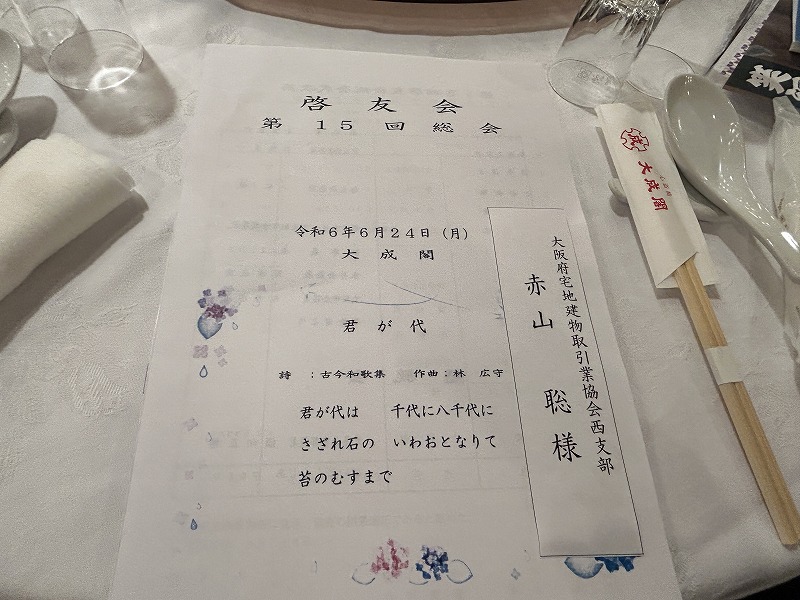 啓友会
第 15 回 総 会
令和6年6月24日（月）
大 成 閣
君 が 代
詩 ：古今和歌集 作曲：林 広守
君が代は 千代に八千代に
さざれ石の いわおとなりて
苔のむすまで
大阪府宅地建物取引業協会西支部
赤山 聡 様
成
大成閣